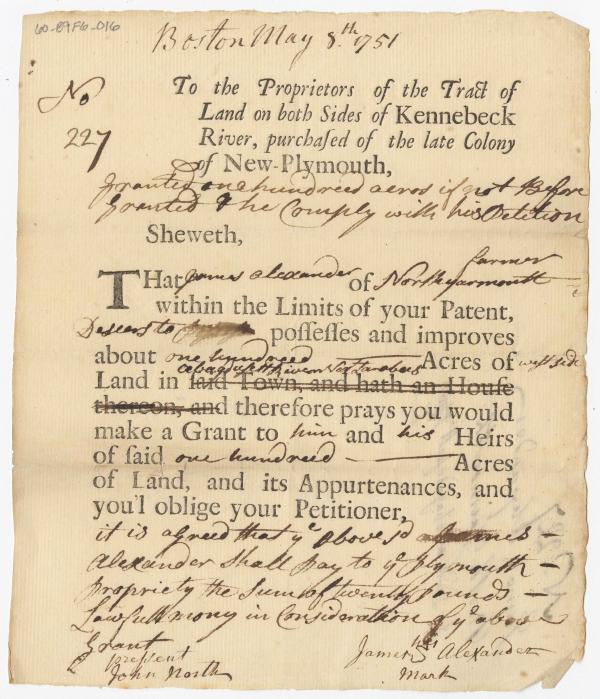 60-89F6-016
Boston May 8.th 1751
No
227
To the Proprietors of the Tract of
Land on both Sides of Kennebeck
River, purchaſed of the late Colony
of New-Plymouth,
Granted one hundreed acros if not Before
Granted & he Comply with his Petition
Sheweth,
farmer
THat James Alexander of Northyarmouth
within the Limits of your Patent,
Desiers to poſſeſſes and improves
about one hundreed Acres of west Side
Land in ſaid Town, and hath an Houſe
thereon, and therefore prays you would
make a Grant to him and his Heirs
of ſaid one hundreed Acres
of Land, and its Appurtenances, and
you'l oblige your Petitioner,
it is agreed that ye above sd James
Alexander Shall pay to ye plymouth
propriety the Sum of twenty pounds
Lawfull mony in Consideration of ye above
Grant
present
John North
James his Alexander
mark